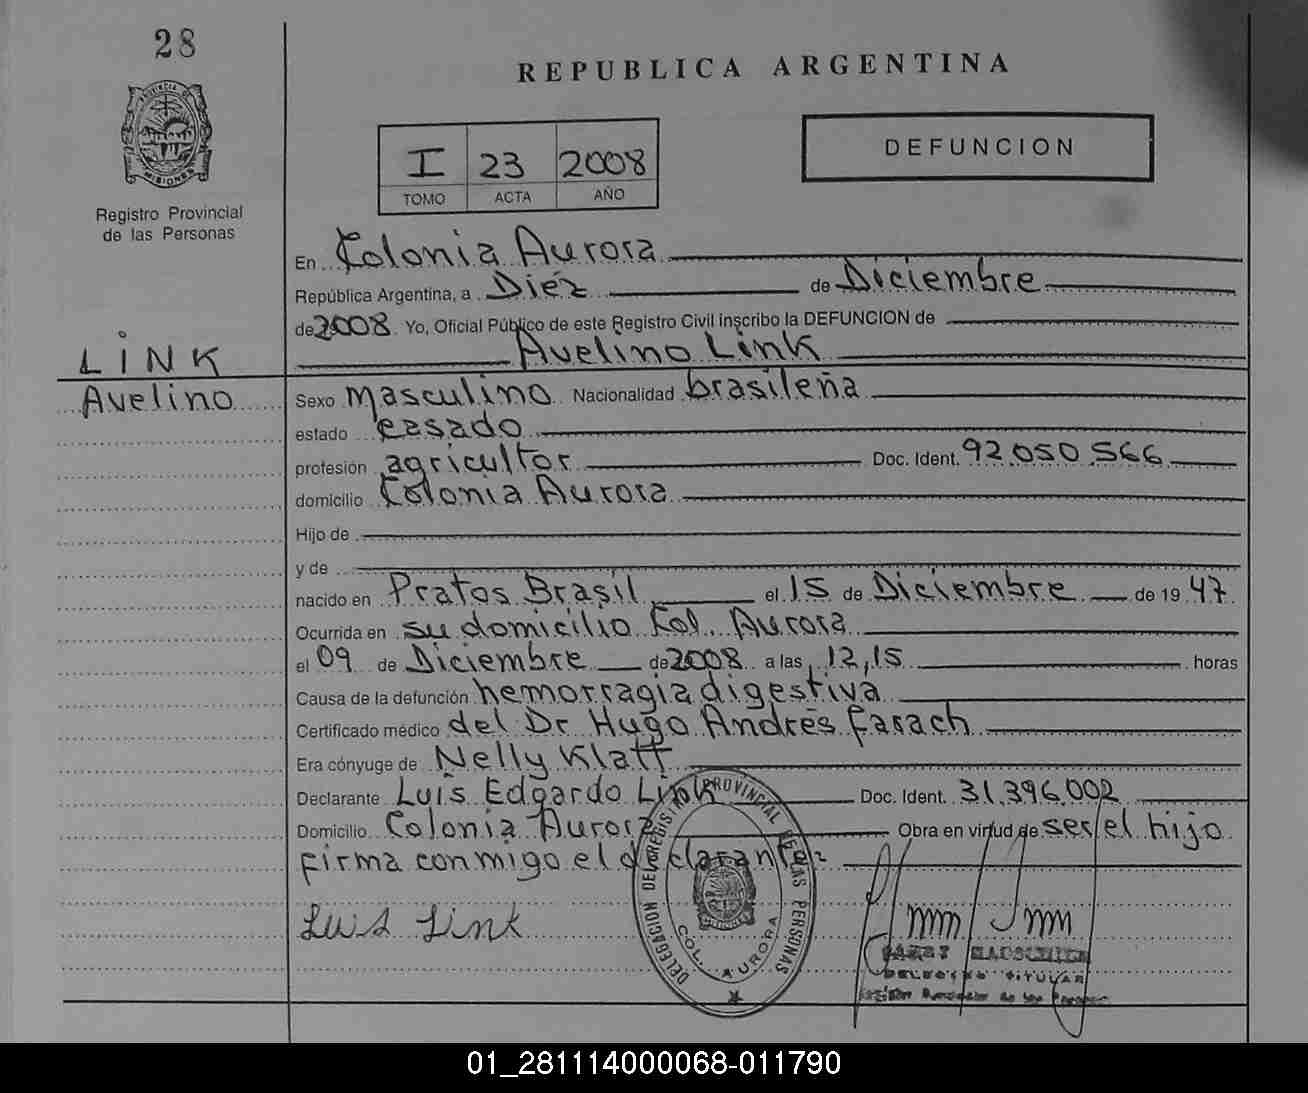 28
REPUBLICA ARGENTINA
PROVINCIA DE
MISIONES
Registro Provincial
de las Personas
I 23 2008
TOMO ACTA AÑO
DEFUNCION
En Colonia Aurora
República Argentina, a Diéz de Diciembre
de 2008. Yo, Oficial Público de este Registro Civil inscribo la DEFUNCION de
LINK
Avelino Link
Avelino
Sexo masculino Nacionalidad brasileña
estado casado
profesión agricultor Doc. Ident. 92.050.566
domicilio Colonia Aurora
Hijo de
y de
nacido en Pratos Brasil el 15 de Diciembre de 1947
Ocurrida en su domicilio Col. Aurora
el 09 de Diciembre de 2008 a las 12,15 horas
Causa de la defunción hemorragia digestiva
Certificado médico del Dr Hugo Andrés Farach
Era cónyuge de Nelly Klatt
Declarante Luis Edgardo Link Doc. Ident. 31.396.002
Domicilio Colonia Aurora Obra en virtud de ser el hijo
firma conmigo el declarante
Luis Link
DELEGACION DEL REGISTRO PROVINCIAL DE LAS PERSONAS
COL. AURORA
TITULAR
01_281114000068-011790